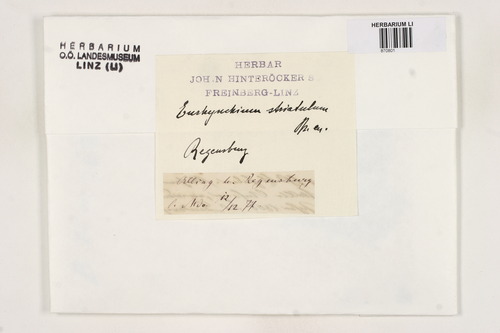 HERBARIUM LI
HERBARIUM
O.Ö. LANDESMUSEUM
LINZ (LI)
HERBAR
JOHAN HINTERÖCKER S.
FREINBERG-LINZ
Eurhynchium striatulum
Br. eu.
Regensburg
bei Regensburg
12/12 74